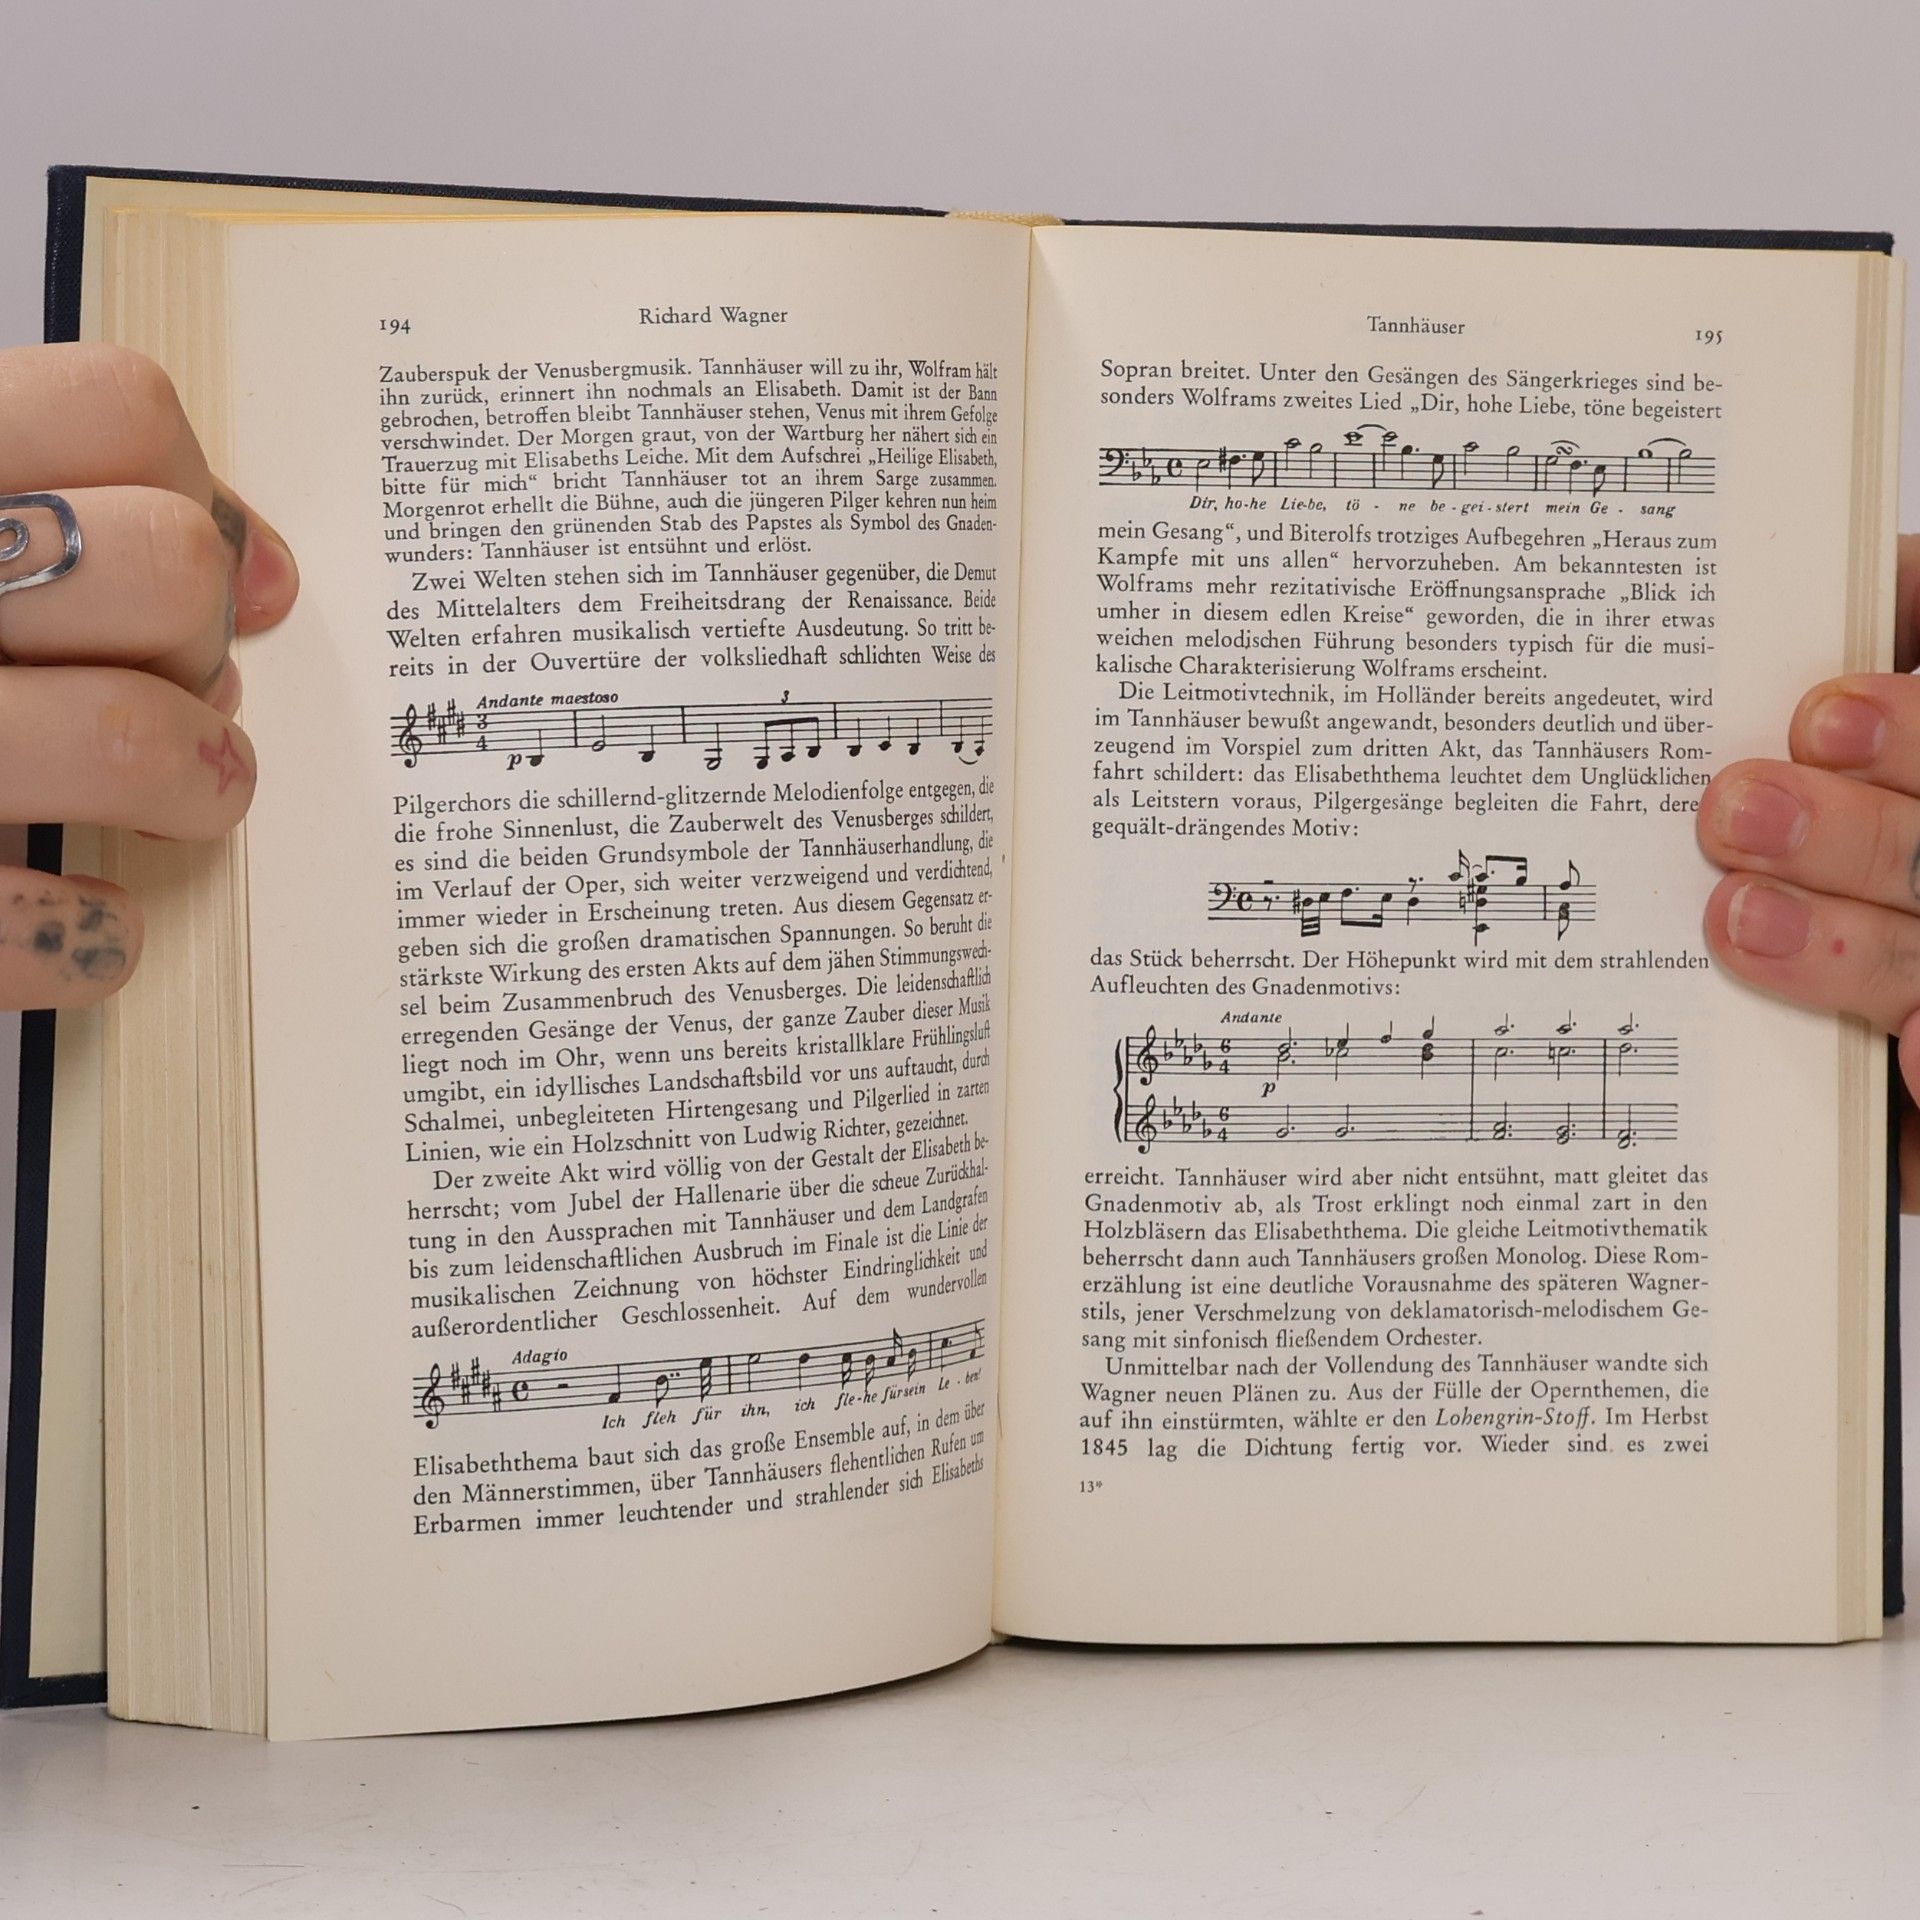 194
Richard Wagner
Zauberspuk der Venusbergmusik. Tannhäuser will zu ihr, Wolfram hält
ihn zurück, erinnert ihn nochmals an Elisabeth. Damit ist der Bann
gebrochen, betroffen bleibt Tannhäuser stehen, Venus mit ihrem Gefolge
verschwindet. Der Morgen graut, von der Wartburg her nähert sich ein
Trauerzug mit Elisabeths Leiche. Mit dem Aufschrei „Heilige Elisabeth,
bitte für mich“ bricht Tannhäuser tot an ihrem Sarge zusammen.
Morgenrot erhellt die Bühne, auch die jüngeren Pilger kehren nun heim
und bringen den grünenden Stab des Papstes als Symbol des Gnaden-
wunders: Tannhäuser ist entsühnt und erlöst.
Zwei Welten stehen sich im Tannhäuser gegenüber, die Demut
des Mittelalters dem Freiheitsdrang der Renaissance. Beide
Welten erfahren musikalisch vertiefte Ausdeutung. So tritt be-
reits in der Ouvertüre der volksliedhaft schlichten Weise des
Andante maestoso
3
3
4
p
Pilgerchors die schillernd-glitzernde Melodienfolge entgegen, die
die frohe Sinnenlust, die Zauberwelt des Venusberges schildert,
es sind die beiden Grundsymbole der Tannhäuserhandlung, die
im Verlauf der Oper, sich weiter verzweigend und verdichtend,
immer wieder in Erscheinung treten. Aus diesem Gegensatz er-
geben sich die großen dramatischen Spannungen. So beruht die
stärkste Wirkung des ersten Akts auf dem jähen Stimmungswech-
sel beim Zusammenbruch des Venusberges. Die leidenschaftlich
erregenden Gesänge der Venus, der ganze Zauber dieser Musik
liegt noch im Ohr, wenn uns bereits kristallklare Frühlingsluft
umgibt, ein idyllisches Landschaftsbild vor uns auftaucht, durch
Schalmei, unbegleiteten Hirtengesang und Pilgerlied in zarten
Linien, wie ein Holzschnitt von Ludwig Richter, gezeichnet.
Der zweite Akt wird völlig von der Gestalt der Elisabeth be-
herrscht; vom Jubel der Hallenarie über die scheue Zurückhal-
tung in den Aussprachen mit Tannhäuser und dem Landgrafen
bis zum leidenschaftlichen Ausbruch im Finale ist die Linie der
musikalischen Zeichnung von höchster Eindringlichkeit und
außerordentlicher Geschlossenheit. Auf dem wundervollen
Adagio
Ich fleh für ihn, ich fle-he für sein Le - ben!
Elisabeththema baut sich das große Ensemble auf, in dem über
den Männerstimmen, über Tannhäusers flehentlichen Rufen um
Erbarmen immer leuchtender und strahlender sich Elisabeths
Tannhäuser
195
Sopran breitet. Unter den Gesängen des Sängerkrieges sind be-
sonders Wolframs zweites Lied „Dir, hohe Liebe, töne begeistert
Dir, ho-he Lie-be, tö - ne be-gei-stert mein Ge - sang
mein Gesang“, und Biterolfs trotziges Aufbegehren „Heraus zum
Kampfe mit uns allen“ hervorzuheben. Am bekanntesten ist
Wolframs mehr rezitativische Eröffnungsansprache „Blick ich
umher in diesem edlen Kreise“ geworden, die in ihrer etwas
weichen melodischen Führung besonders typisch für die musi-
kalische Charakterisierung Wolframs erscheint.
Die Leitmotivtechnik, im Holländer bereits angedeutet, wird
im Tannhäuser bewußt angewandt, besonders deutlich und über-
zeugend im Vorspiel zum dritten Akt, das Tannhäusers Rom-
fahrt schildert: das Elisabeththema leuchtet dem Unglücklichen
als Leitstern voraus, Pilgergesänge begleiten die Fahrt, dere
gequält-drängendes Motiv:
das Stück beherrscht. Der Höhepunkt wird mit dem strahlenden
Aufleuchten des Gnadenmotivs:
Andante
6
4
p
6
4
erreicht. Tannhäuser wird aber nicht entsühnt, matt gleitet das
Gnadenmotiv ab, als Trost erklingt noch einmal zart in den
Holzbläsern das Elisabeththema. Die gleiche Leitmotivthematik
beherrscht dann auch Tannhäusers großen Monolog. Diese Rom-
erzählung ist eine deutliche Vorausnahme des späteren Wagner-
stils, jener Verschmelzung von deklamatorisch-melodischem Ge-
sang mit sinfonisch fließendem Orchester.
Unmittelbar nach der Vollendung des Tannhäuser wandte sich
Wagner neuen Plänen zu. Aus der Fülle der Opernthemen, die
auf ihn einstürmten, wählte er den Lohengrin-Stoff. Im Herbst
1845 lag die Dichtung fertig vor. Wieder sind es zwei
13*